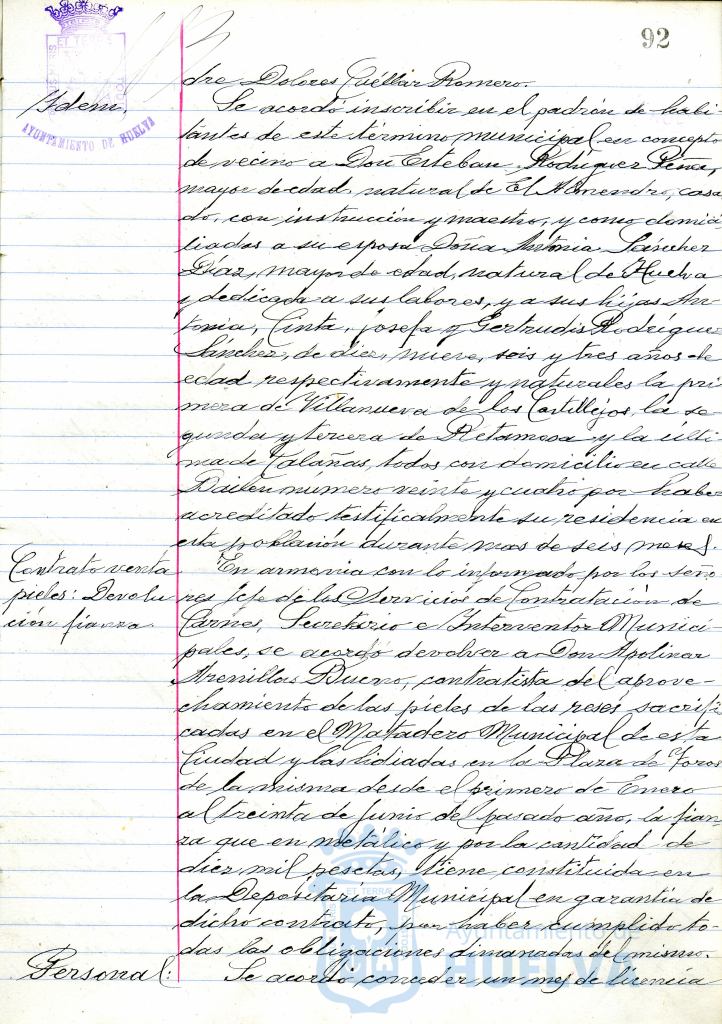 92
AYUNTAMIENTO DE HUELVA
dre Dolores Cuéllar Romero.
Idem.
Se acordó inscribir en el padrón de habi-
tantes de este término municipal en concepto
de vecino a Don Esteban Rodríguez Peña,
mayor de edad, natural de El Almendro, casa
do, con instrucción y maestro, y como domici
liadas a su esposa Doña Antonia Sánchez
Díaz, mayor de edad, natural de Huelva
y dedicada a sus labores, y a sus hijas An-
tonia, Cinta, Josefa y Gertrudis Rodríguez
Sánchez, de diez, nueve, seis y tres años de
edad respectivamente y naturales la pri
mera de Villanueva de los Castillejos, la se
gunda y tercera de Retamosa y la últi
ma de Calañas, todos con domicilio en calle
Bailén número veinte y cuatro por haber
acreditado testificalmente su residencia en
esta población durante mas de seis meses.
Contrato venta
pieles: Devolu
ción fianza.
En armonia con lo informado por los seño
res Jefe de los Servicios de Contratación de
Carnes, Secretario e Interventor Munici-
pales, se acordó devolver a Don Apolinar
Arenillas Bueno, contratista del aprove-
chamiento de las pieles de las reses sacrifi
cadas en el Matadero Municipal de esta
Ciudad y las lidiadas en la Plaza de Toros
de la misma desde el primero de Enero
al treinta de Junio del pasado año, la fian-
za que en metálico y por la cantidad de
diez mil pesetas, tiene constituida en
la Depositaría Municipal en garantía de
dicho contrato, por haber cumplido to-
das las obligaciones dimanadas del mismo.
Personal:
Se acordó conceder un mes de licencia
Ayuntamiento de
HUELVA